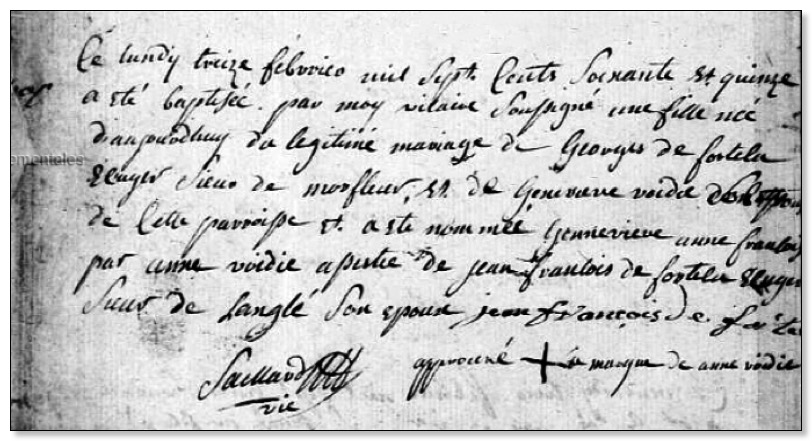 Ce lundy treize fébvrier mil sept Cents Soixante Et quinze
a été baptiséé par moy vicaire soussigné une fille néé
d'aujourdhuy du legitimé mariage de Georges de fortela
Ecuyer Sieur de monfleur, Et de Genevieve voidie
de Cette parroisse Et a été nomméé Gennevieve anne françois
par anne voidie de jean françois de fortela Ecuyer
Sieur de Langlé Son epoux jean françois de forte
Saillard approuvé + la marque de anne voidie
vic
ementales